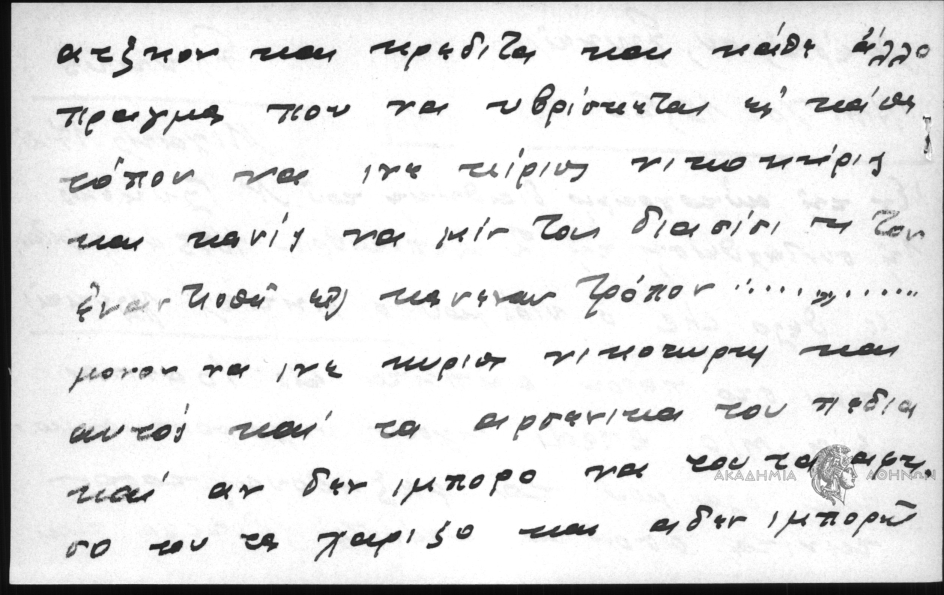 ατζικον και κρεδιτα και κάθε άλλο
πραγμα που να υβρίσκεται εἰς κάθε
τόπον να ινε κίριος νικοκίρις
και κανίς να μίν τον διασίσι ἤ τον
ἐναντιοθῆ εἰς κανεναν τρόπον ...........
μονον να ινε κυριος νικοκυρις και
αυτός και τα αρσενικα του πεδια
και αν δεν ιμπορο να του τα αφι,
σο του τα χαριζο και αδεν ιμπορῆ
ΑΚΑΔΗΜΙΑ ΑΘΗΝΩΝ